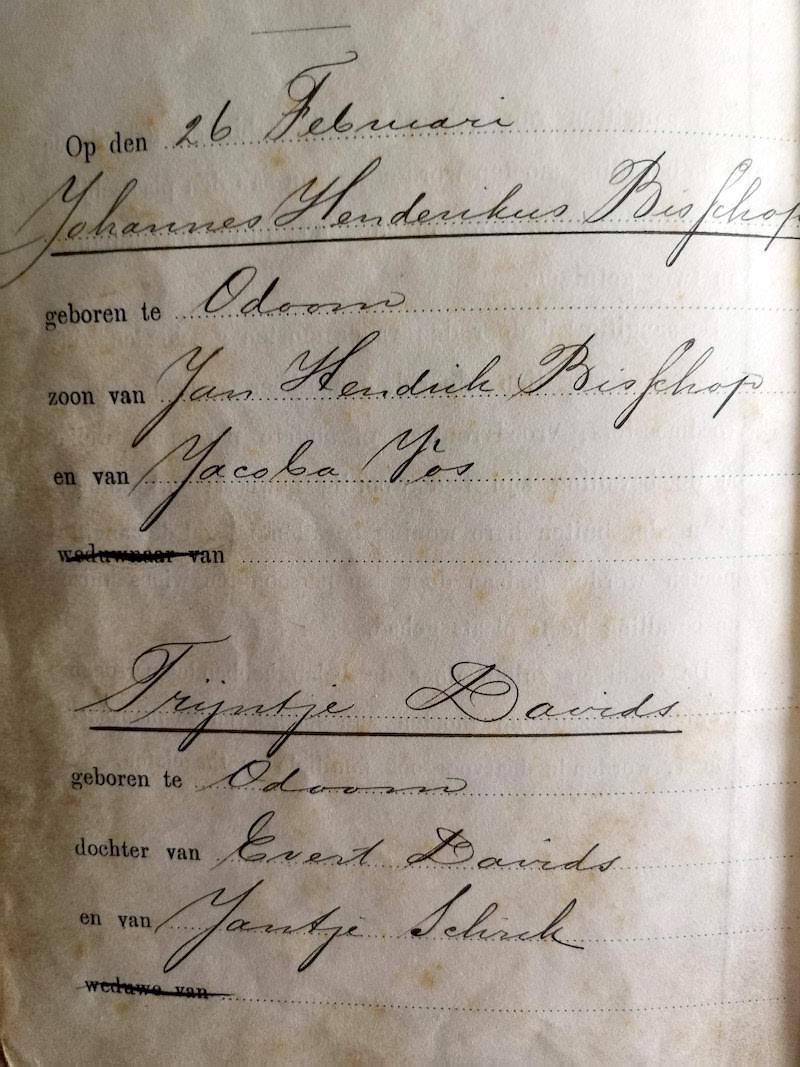 Op den 26 Februari
Johannes Henderikus Bisschop
geboren te Odoorn
zoon van Jan Hendrik Bisschop
en van Jacoba Vos
weduwnaar van
Trijntje Davids
geboren te Odoorn
dochter van Evert Davids
en van Jantje Schrik
weduwe van